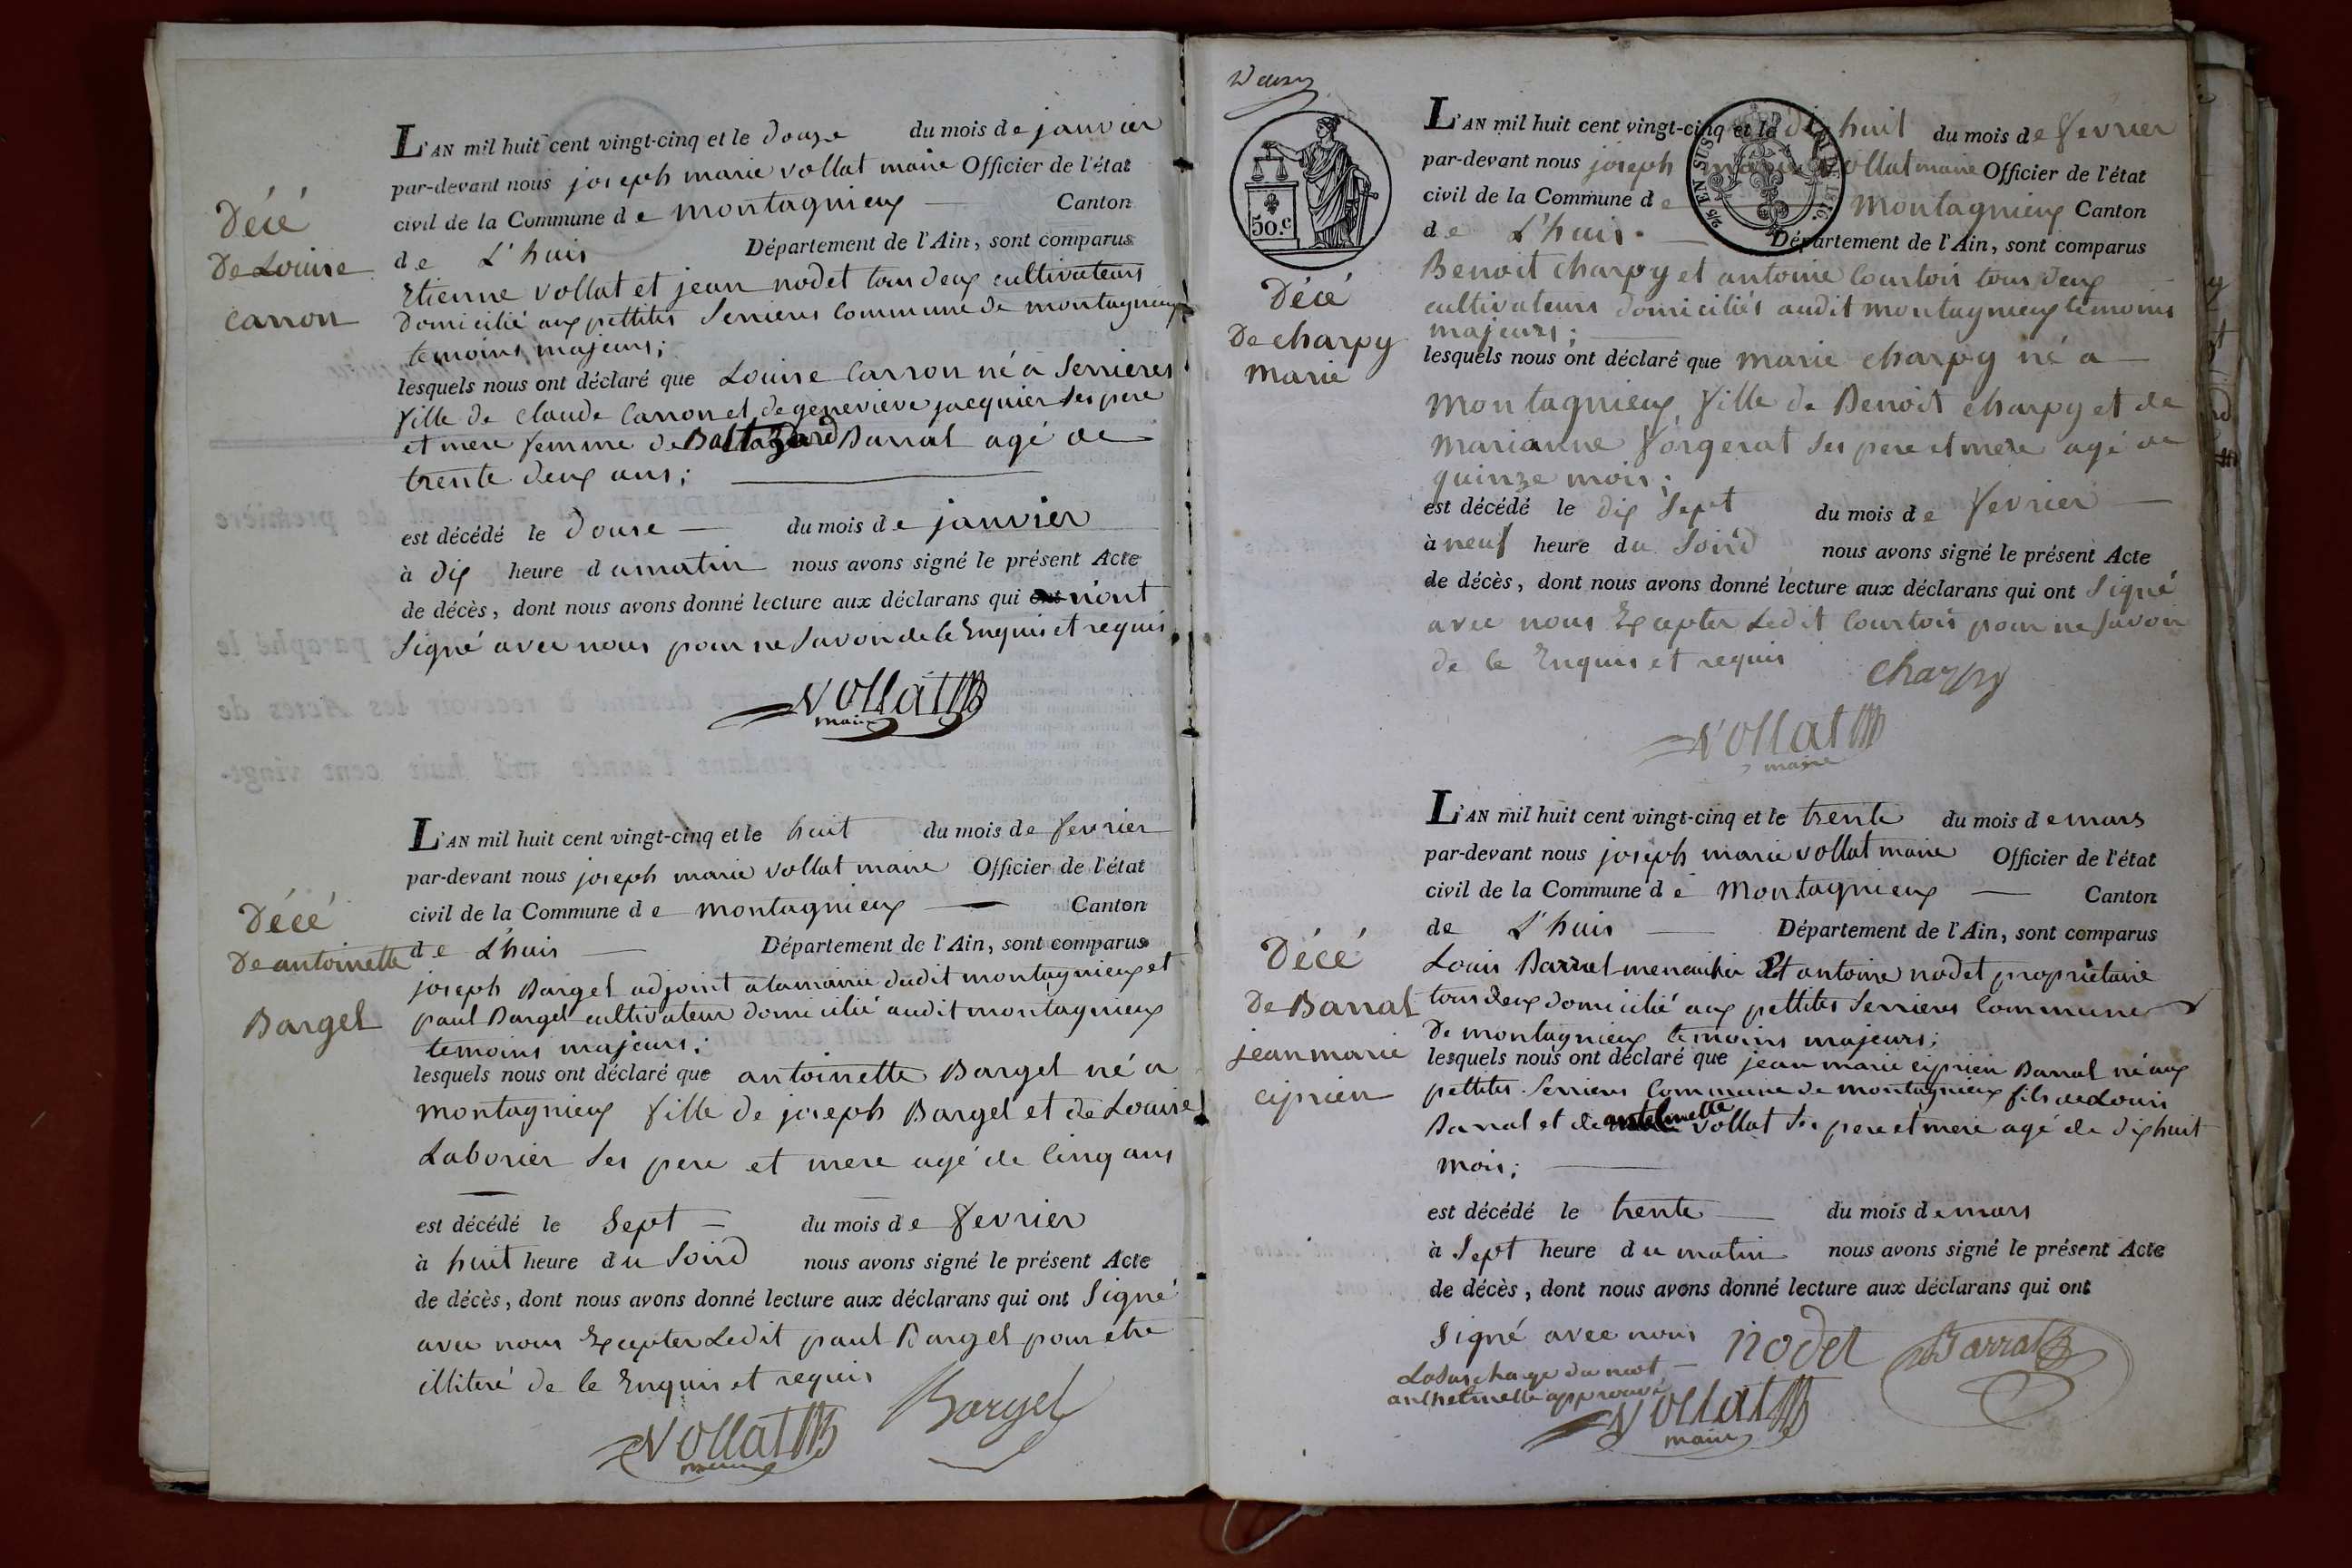 Décé
De Louise
Carron
L'AN mil huit cent vingt-cinq et le douze du mois de janvier
par-devant nous joseph marie vollat maire Officier de l'état
civil de la Commune de montagnieux Canton
de L'huis Département de l'Ain, sont comparus
Etienne vollat et jean nodet tous deux cultivateurs
Domicilié aux pettites Serrieres Commune de montagnieux
temoins majeurs;
lesquels nous ont déclaré que Louise Carron né à Serrieres
fille de Claude Carron et de genevieve jacquier ses pere
et mere femme de Baltazard Barral agé de
trente deux ans;
est décédé le douse du mois de janvier
à dix heure du matin nous avons signé le présent Acte
de décès, dont nous avons donné lecture aux déclarans qui ont n'ont
Signé avec nous pour ne savoir de ce Enquis et requis
vollat
maire
Décé
De antoinette
Bargel
L'AN mil huit cent vingt-cinq et le huit du mois de fevrier
par-devant nous joseph marie vollat maire Officier de l'état
civil de la Commune de montagnieux Canton
de L'huis Département de l'Ain, sont comparus
joseph Bargel adjoint a la mairie dudit montagnieux et
paul Bargel cultivateur domicilié audit montagnieux
temoins majeurs;
lesquels nous ont déclaré que antoinette Bargel né a
montagnieux fille de joseph Bargel et de Louise
Laborier ses pere et mere agé de Cinq ans
est décédé le Sept du mois de fevrier
à huit heure du Soird nous avons signé le présent Acte
de décès, dont nous avons donné lecture aux déclarans qui ont Signé
avec nous Excepter Ledit paul Bargel pour etre
illiteré de ce Enquis et requis
Bargel
vollat
maire
50.c
Décé
De charpy
marie
L'AN mil huit cent vingt-cinq et le dix huit du mois de fevrier
par-devant nous joseph marie vollat maire Officier de l'état
civil de la Commune de Montagnieux Canton
de L'huis. Département de l'Ain, sont comparus
Benoit charpy et antoine Courtois tous deux
cultivateurs domiciliés audit montagnieux temoins
majeurs;
lesquels nous ont déclaré que marie charpy né a
montagnieux, fille de Benoit charpy et de
marianne Forgerat ses pere et mere agé de
quinze mois;
est décédé le dix Sept du mois de fevrier
à neuf heure du Soird nous avons signé le présent Acte
de décès, dont nous avons donné lecture aux déclarans qui ont Signé
avec nous Excepter Ledit Courtois pour ne savoir
de ce Enquis et requis
charpy
vollat
maire
Décé
De Barral
jean marie
ciprien
L'AN mil huit cent vingt-cinq et le trente du mois de mars
par-devant nous joseph marie vollat maire Officier de l'état
civil de la Commune de Montagnieux Canton
de L'huis Département de l'Ain, sont comparus
Louis Barral Et antoine nodet proprietaire
tous deux domicilié aux pettites Serrieres Commune
De montagnieux temoins majeurs;
lesquels nous ont déclaré que jean marie ciprien Barral né aux
pettites Serrieres Commune de montagnieux fils de Louis
Barral et de antelmette vollat ses pere et mere agé de dix huit
mois;
est décédé le trente du mois de mars
à Sept heure du matin nous avons signé le présent Acte
de décès, dont nous avons donné lecture aux déclarans qui ont
Signé avec nous nodet Barral
La Surcharge du mot
anthelmette approuvé
vollat
maire